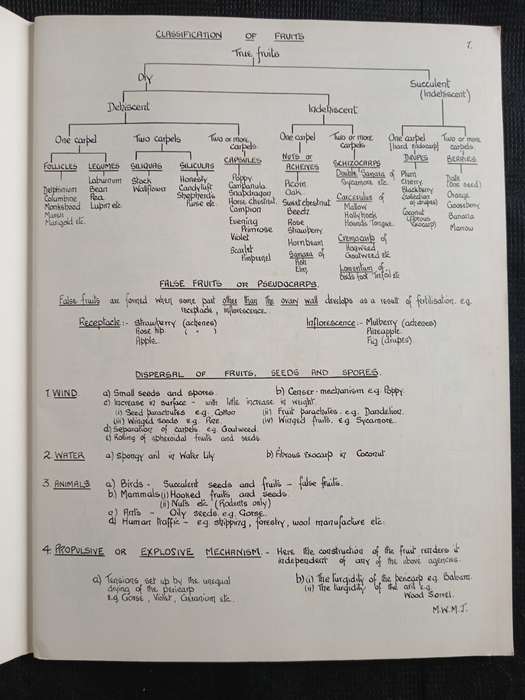 CLASSIFICATION OF FRUITS
1.
True fruits
Dry
Succulent
(Indehiscent)
Dehiscent
Indehiscent
One carpel
Two carpels
Two or more
carpels
One carpel
Two or more
carpels
One carpel
(hard endocarp)
Two or more
carpels
FOLLICLES
Delphinium
Columbine
Monkshood
Marigold etc.
LEGUMES
Laburnum
Bean
Pea
Lupin etc.
SILIQUAS
Stock
Wallflower
SILICULAS
Honesty
Candytuft
Shepherds
Purse etc.
CAPSULES
Poppy
Campanula
Snapdragon
Horse Chestnut
Campion
Evening
Primrose
Violet
Scarlet
Pimpernel
NUTS or
ACHENES
Acorn
Oak
Sweet chestnut
Beech
Rose
Strawberry
Hornbeam
Samara of
Ash
Elm
SCHIZOCARPS
Double Samara of
Sycamore etc.
Carcerulus of
Mallow
Hollyhock
Hounds Tongue.
Cremocarp of
Hogweed
Goutweed etc
Lomentum of
Birds foot Trefoil etc
DRUPES
Plum
Cherry
Blackberry
(collection
of drupes)
Coconut
(fibrous
exocarp)
BERRIES
Date
(one seed)
Orange
Gooseberry
Banana
Marrow
FALSE FRUITS OR PSEUDOCARPS.
False fruits are formed when some part other than the ovary wall develops as a result of fertilisation. e.g.
receptacle, inflorescence.
Receptacle:- Strawberry (achenes)
Rose hip ( " )
Apple.
Inflorescence:- Mulberry (achenes)
Pineapple.
Fig (drupes)
DISPERSAL OF FRUITS, SEEDS AND SPORES.
1. WIND a) Small seeds and spores. b) Censer-mechanism e.g. Poppy
c) Increase in surface - with little increase in weight.
(i) Seed parachutes e.g. Cotton (ii) Fruit parachutes. e.g. Dandelion.
(iii) Winged seeds e.g. Pine. (iv) Winged fruits. e.g. Sycamore.
d) Separation of carpels e.g. Goutweed.
e) Rolling of spheroidal fruits and seeds
2. WATER a) Spongy aril in Water Lily b) Fibrous exocarp in Coconut
3. ANIMALS a) Birds - Succulent seeds and fruits - false fruits.
b) Mammals (i) Hooked fruits and seeds.
(ii) Nuts etc. (Rodents only)
c) Ants - Oily seeds. e.g. Gorse.
d) Human Traffic - e.g. shipping, forestry, wool manufacture etc.
4. PROPULSIVE OR EXPLOSIVE MECHANISM. - Here the construction of the fruit renders it
independent of any of the above agencies.
a) Tensions, set up by the unequal
drying of the pericarp
e.g. Gorse, Violet, Geranium etc.
b) (i) The turgidity of the pericarp e.g. Balsam.
(ii) The turgidity of the aril e.g.
Wood Sorrel.
M.W.M.J.